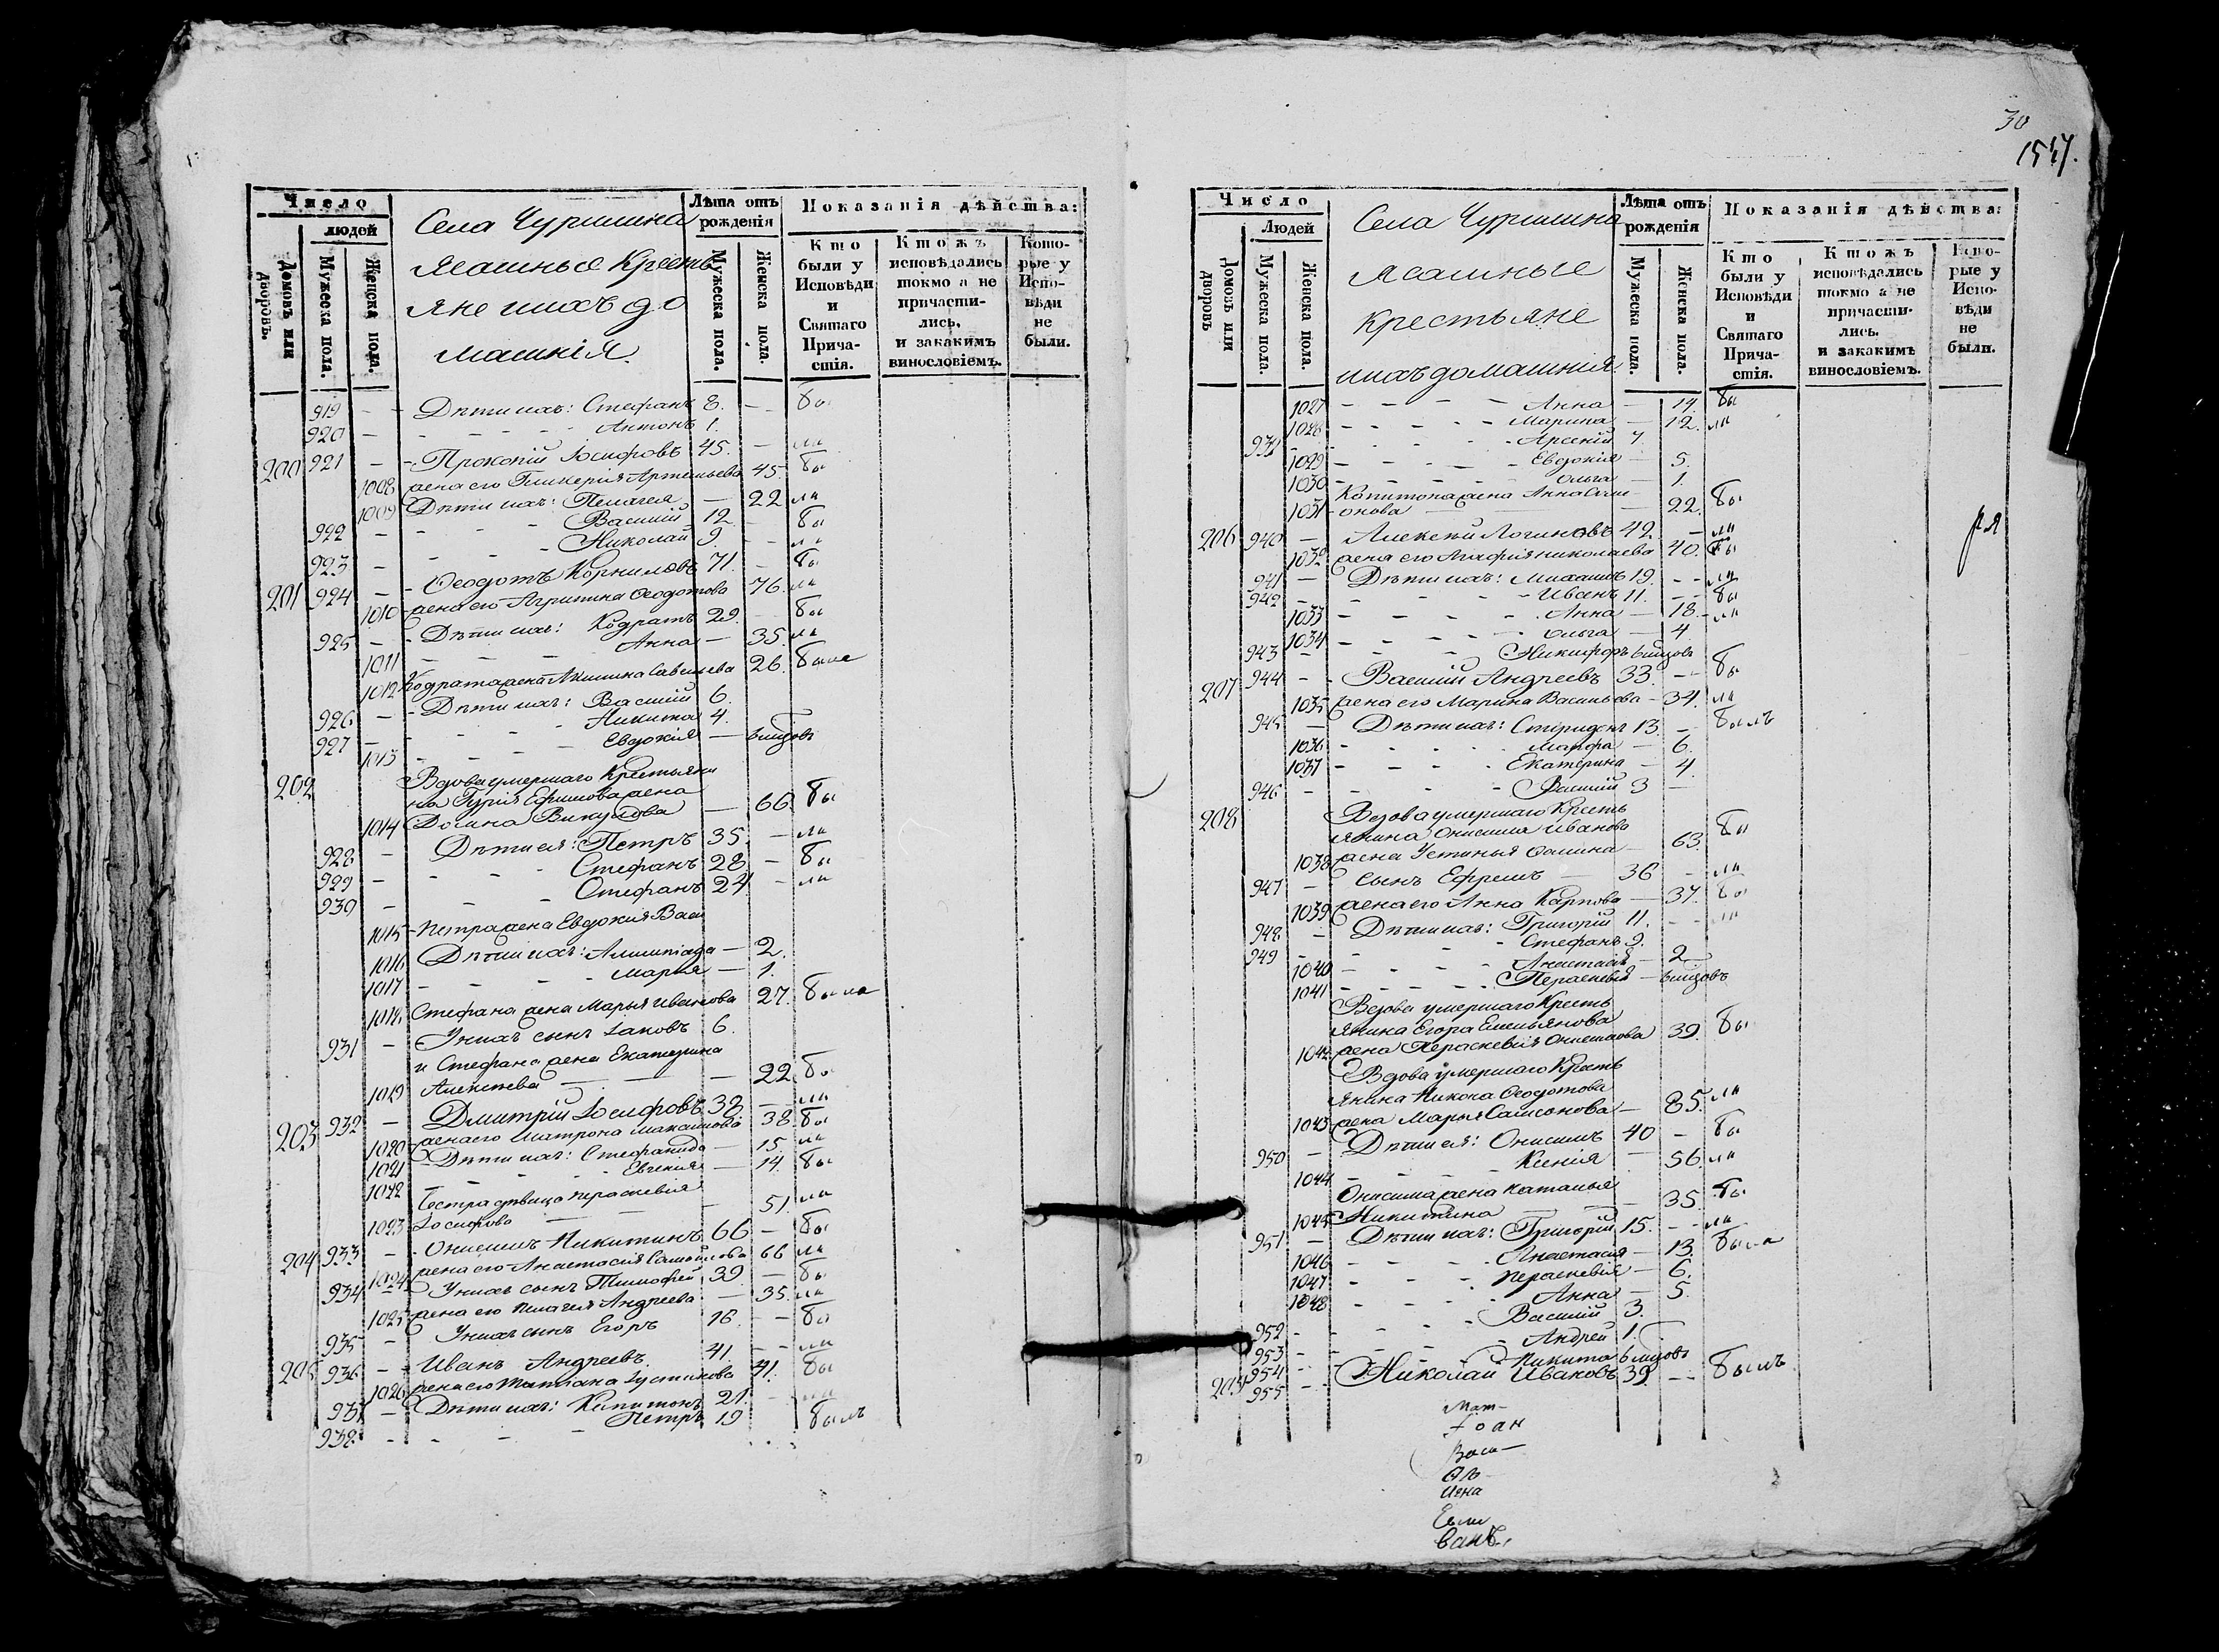 Число
людей
Домовъ или дворовъ.
Мужеска пола.
Женска пола.
Села Чуршина
Ясашные Кресть
яне и ихъ до
машнія
Лѣта отъ рожденія
Мужеска пола.
Женска пола.
Показанія дѣйства:
Кто были у Исповѣди и Святаго Прича-стія.
Ктожъ исповѣдались токмо а не причасти-лись, и закакимъ винословіемъ.
Кото-рые у Испо-вѣди не были.
919 - - Дѣти ихъ: Стефанъ 8. - бы
920 - - Антонъ 1.
200 921 - - Прокопій Іосифовъ 45. - ли
1008 жена его Гликерія Артемьева 45. бы
1009 Дѣти ихъ: Пелагея - 22 ли
922 - - Василій 12 - бы
923 - - Николай 9. - ли
201 924 - - Ѳеодотъ Корниловъ 71. - бы
1010 жена его Агрипина Ѳеодотова 76. ли
925 - - Дѣти ихъ: Кодратъ 29. - бы
1011 - - Анна - 35. ли
1012 Кодрата жена Акилина Савельева 26. была
926 - - Дѣти ихъ: Василій 6.
927 - - Никита 4.
1013 - - Евдокія - 6 мцовъ
202 Вдова умершаго Крестьяни
на Гурія Ефимова жена
1014 Домна Викулова - 66. бы
928 - Дѣти ея: Петръ 35. - ли
929 - - Стефанъ 28. - бы
930 - - Стефанъ 24. - ли
1015 Петра жена Евдокия Васи
1016 Дѣти ихъ: Алимпіада - 2.
1017 - - Марья - 1.
1018 Стефана жена Марья Иванова 27. была
931 - У нихъ сынъ Іаковъ 6.
и Стефана жена Екатерина
1019 Алексѣева - 22. бы
203 932 - Дмитрій Іосифовъ 38 - ли
1020 жена его Матрона Максимова 38 бы
1021 Дѣти ихъ: Стефанида - 15. ли
1022 - - Евгенія - 14. бы
Сестра дѣвица Параскевія
1023 Іосифова - 51. ли
204 933 - - Онисимъ Никитинъ 66 - бы
1024 жена его Анастасія Самойлова 66 ли
934 У нихъ сынъ Тимофей 39. - бы
1025 жена его Пелагея Андреева - 35. ли
935 - У нихъ сынъ Егоръ 16. - бы
205 936 - - Иванъ Андреевъ. 41 - ли
1026 жена его Татиана Іустинова 41. бы
937 - Дѣти ихъ: Капитонъ 21. - ли
938 - - Петръ 19 былъ
30
1547.
Число
Людей
Домовъ или дворовъ
Мужеска пола.
Женска пола.
Села Чуршина
Ясашные
крестьяне
и ихъ домашнія
Лѣта отъ рожденія
Мужеска пола.
Женска пола.
Показанія дѣйства:
Кто были у Исповѣди и Святаго Прича-стія.
Ктожъ исповѣдались токмо а не причасти-лись. и закакимъ винословіемъ.
Кото-рые у Испо-вѣди не были.
1027 - - Анна - 14. бы
1028 - - Марина - 12. ли
939 - - Арсеній 7.
1029 - - Евдокія - 5.
1030 - - Ольга - 1.
Капитона жена Анна Сими
1031 онова - 22. бы
206 940 - Алексѣй Логиновъ 42. - ли
1032 жена его Агафія Николаева 40. бы
941 - Дѣти ихъ: Михаилъ 19. - - ли
942 - - Иванъ 11. - - бы
1033 - - Анна - 18. ли
1034 - - Ольга - 4.
943 - - Никифоръ 6 мцовъ
207 944 - - Василій Андреевъ 33. - бы
1035 жена его Марина Васильева - 34. ли
945 - Дѣти ихъ: Спиридонъ 13. - былъ
1036 - - Марфа - 6.
1037 - - Екатерина - 4.
946 - - Василій 3 -
208 Вдова умершаго Кресть
янина Онисима Иванова
1038 жена Устинья Фомина - 63. бы
947 - Сынъ Ефремъ - 36 - ли
1039 жена его Анна Карпова - 37. бы
948 - Дѣти ихъ: Григорій 11. - - ли
949 - - Стефанъ 9.
1040 - - Анастасія - 2
1041 - - Параскевія - 6 мцовъ
Вдова умершаго Кресть
янина Егора Емельянова
1042 жена Параскевія Онисимова 39. бы
Вдова умершаго Кресть
янина Никона Ѳеодотова
1043 жена Марья Самсонова - 85. ли
950 - Дѣти ея: Онисимъ 40 - бы
1044 - - Ксенія - 56 ли
Онисима жена Наталья
1045 Никитина - 35. бы
951 - Дѣти ихъ: Григорій 15. - - ли
1046 - - Анастасія - 13. была
1047 - - Параскевія - 6.
1048 - - Анна - 5.
952 - - Василій 3.
953 - - Андрей 1.
954 - - Никита 6 мцовъ
209 955 - - Николай Ивановъ 39. - - былъ
ря
Мат-
Іоан
Васи-
Иена
Емли
ванъ.